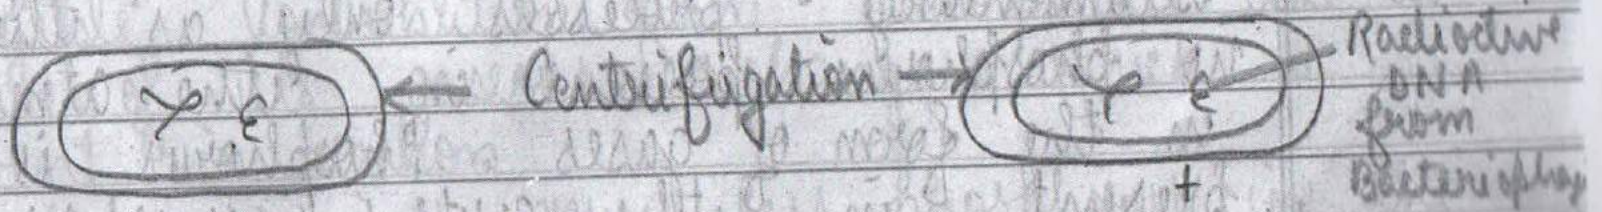 Centrifugation
Radioactive
DNA
from
Bacteriophag
+